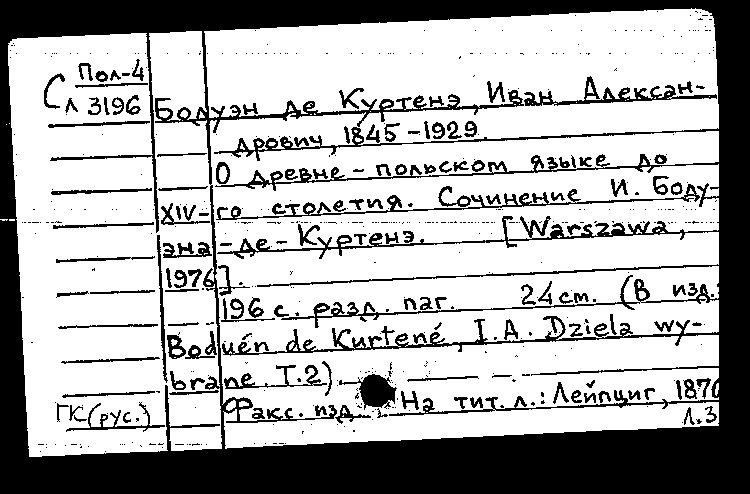 Пол-4
С
л 3196
Бодуэн де Куртенэ, Иван Алексан-
дрович, 1845-1929.
О древне-польском языке до
XIV-го столетия. Сочинение И. Боду-
эна-де-Куртенэ. [Warszawa,
1976].
196 с. разд. паг. 24 см. (В изд.:
Boduén de Kurtené, I.A. Dziela wy-
brane. T.2).
Факс. изд. На тит. л.: Лейпциг, 1870
ГК(рус.)
Л.3